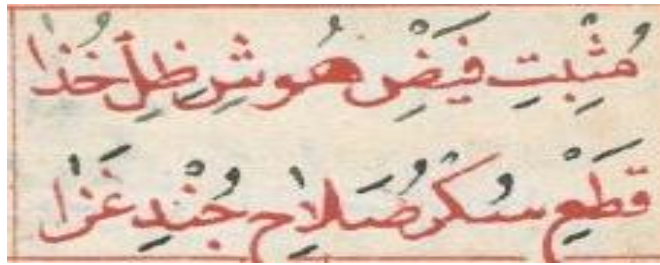 مُثْبِتِ فَيْضِ هُوشِ ظِلِّ خُدَا
قَطْعِ سُكْر صَلَاحِ جُنْدِ غَزَا